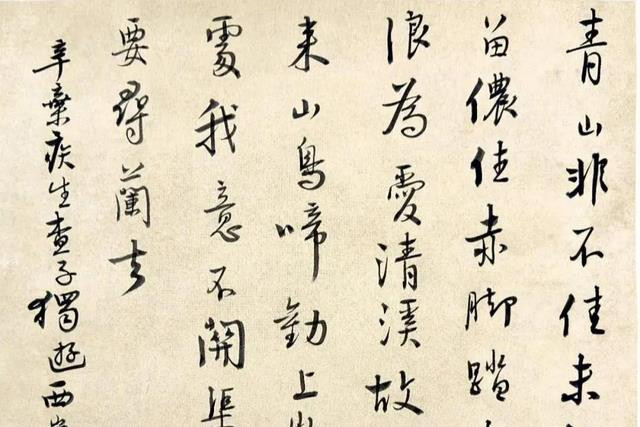 青山非不佳未
留儂住赤脚踏
浪為愛清溪故
来山鳥啼勸上
處我意不關渠
要尋蘭去
辛棄疾生查子獨遊西